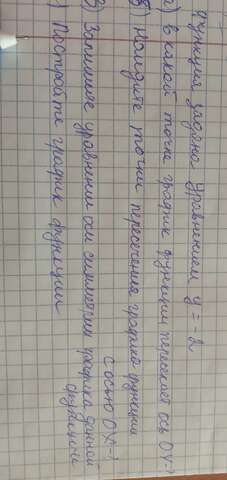 Функция задана уравнением y = -2
а) в какой точке график функции пересекает ось OY-?
б) Найдите точки пересечения графика функции
с осью OX-?
в) Запишите уравнение оси симметрии графика данной
функции
) Постройте график функции